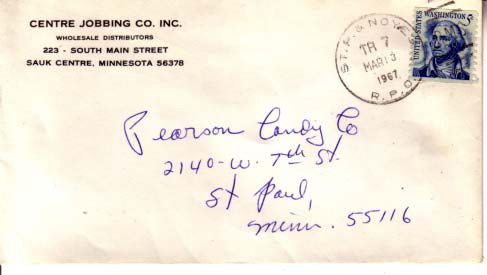 CENTRE JOBBING CO. INC.
WHOLESALE DISTRIBUTORS
223 - SOUTH MAIN STREET
SAUK CENTRE, MINNESOTA 56378
ST. P. & NOYES
TR 7
MAR 13
1967
R.P.O.
WASHINGTON 5c
UNITED STATES
Pearson Candy Co
2140-W. 7th St.
St Paul,
Minn. 55116